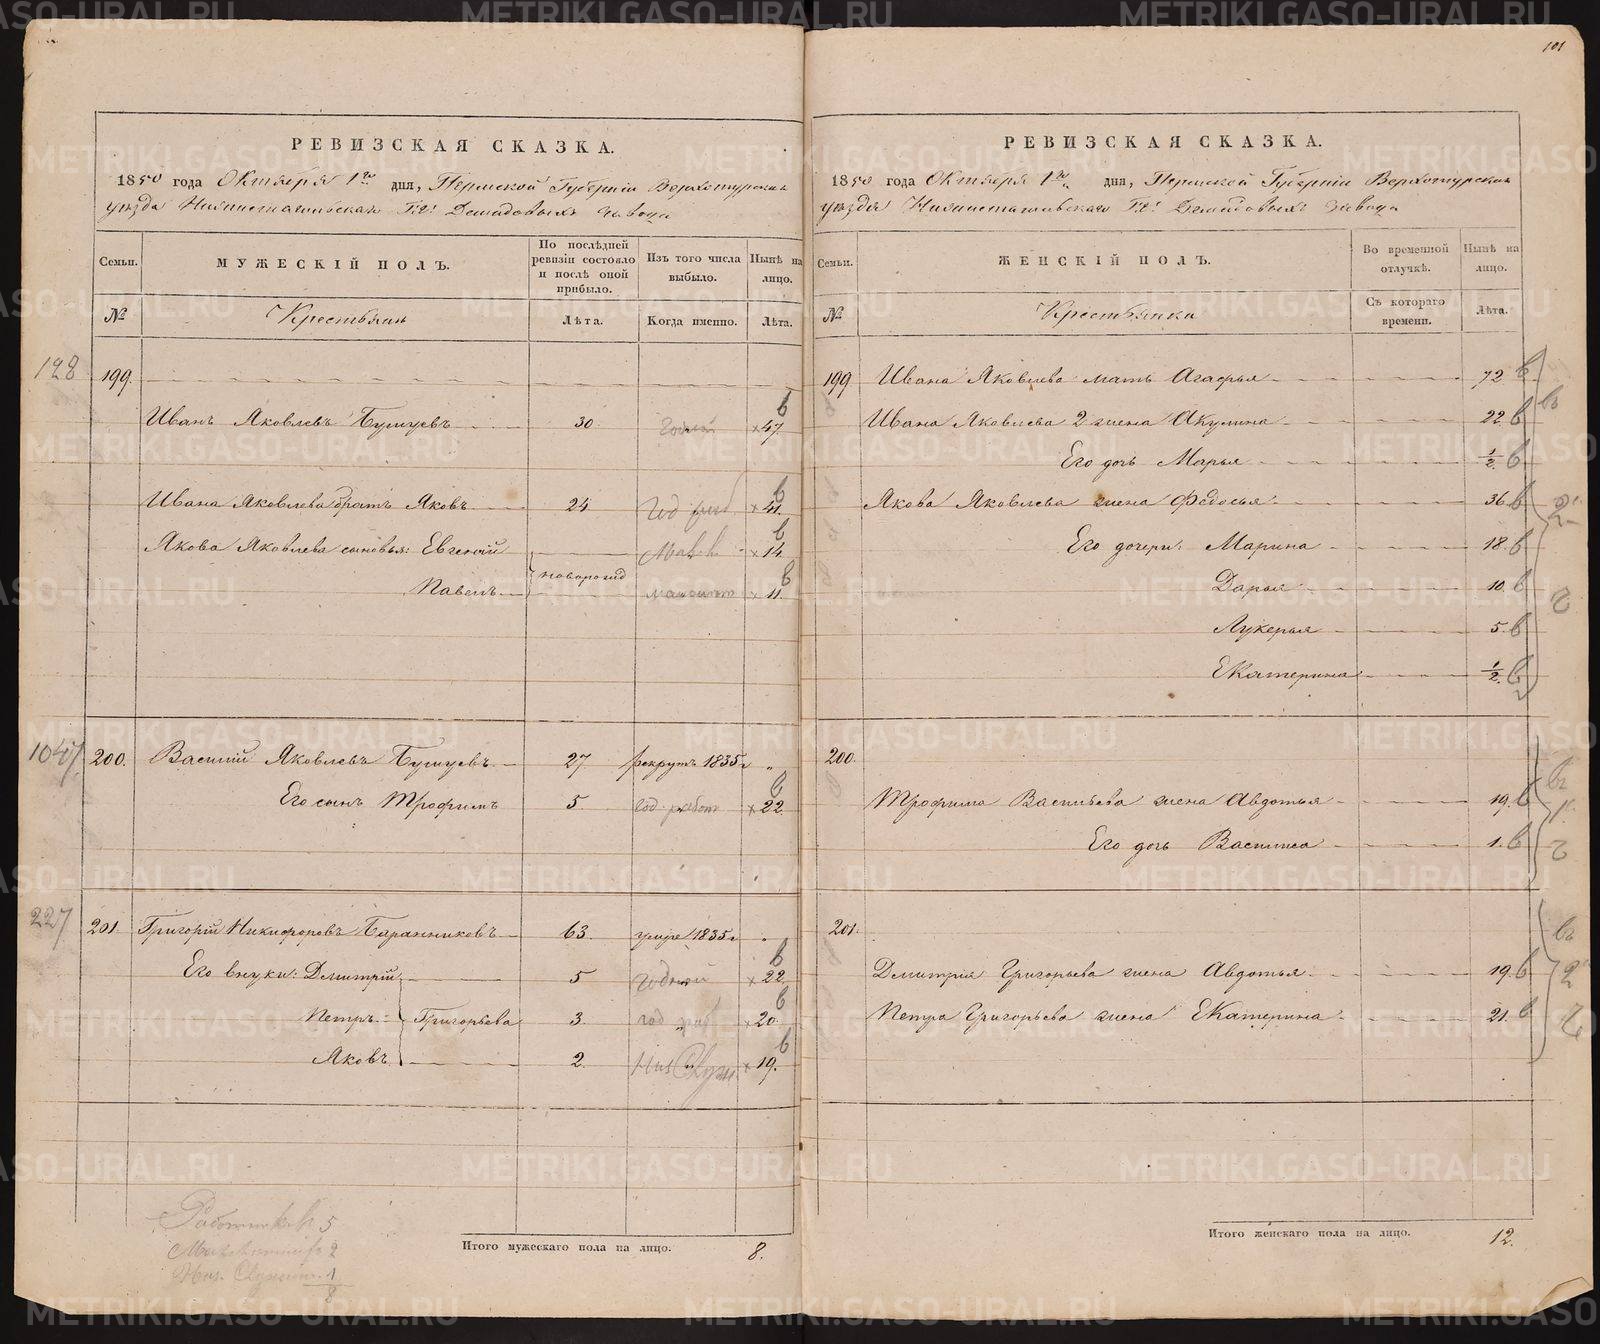 101
РЕВИЗСКАЯ СКАЗКА.
1850 года Октября 1го дня, Пермской Губерніи Верхотурскаго
уѣзда Нижнетагильскаго Г.г. Демидовыхъ завода
Семьи.
МУЖЕСКІЙ ПОЛЪ.
По послѣдней ревизіи состояло и послѣ оной прибыло.
Изъ того числа выбыло.
Нынѣ на лицо.
№
Крестьянъ
Лѣта.
Когда именно.
Лѣта.
128 199.
Иванъ Яковлевъ 30. Годный 47.
Ивана Яковлева братъ Яковъ 24 Год раб 41.
Якова Яковлева сыновья: Евгеній 14.
Павелъ новорожд 11.
1047 200. Василій Яковлевъ 27 рекрутъ 1835 г "
Его сынъ Трофимъ 5 год. работ 22.
227 201. Григорій Никифоровъ Баранниковъ 63. умре 1835 г
Его внуки: Дмитрій 5 Годный 22.
Петръ Григорьева 3. год раб 20.
Яковъ 2. Низ Служ. 19.
Итого мужескаго пола на лицо. 8.
Работник 5
2
Низ. Служит. 1
8
РЕВИЗСКАЯ СКАЗКА.
1850 года Октября 1го дня, Пермской Губерніи Верхотурскаго
уѣзда Нижнетагильскаго Г.г. Демидовыхъ завода
Семьи.
ЖЕНСКІЙ ПОЛЪ.
Во временной отлучкѣ.
Нынѣ на лицо.
№
Крестьянки
Съ котораго времени.
Лѣта.
199 Ивана Яковлева мать Агафья 72
Ивана Яковлева 2 жена Акулина 22.
Его дочь Марья 1/2.
Якова Яковлева жена Федосья 36
Его дочери: Марина 18.
Дарья 10.
Лукерья 5.
Екатерина 1/2.
200.
Трофима Васильева жена Авдотья 19.
Его дочь Василиса 1.
201.
Дмитрія Григорьева жена Авдотья 19.
Петра Григорьева жена Екатерина 21.
Итого женскаго пола на лицо. 12.
METRIKI.GASO-URAL.RU